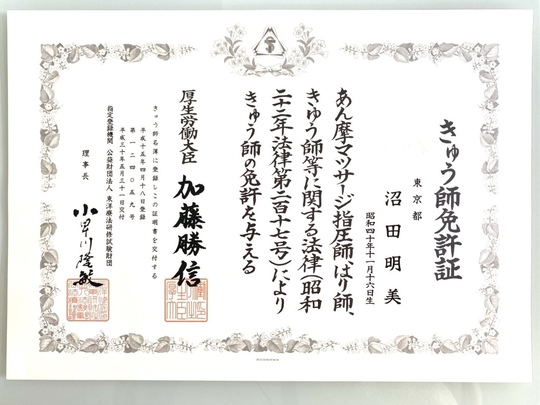 きゅう師免許証
東京都
沼田明美
昭和四十年十一月十六日生
あん摩マツサージ指圧師、はり師、
きゅう師等に関する法律（昭和
二十二年法律第二百十七号）により
きゅう師の免許を与える
厚生労働大臣 加藤勝信
きゅう師名簿に登録しこの証明書を交付する
平成十五年四月十八日登録
第一二四〇五九号
平成三十年五月三十一日交付
指定登録機関 公益財団法人 東洋療法研修試験財団
理事長 小早川隆敏